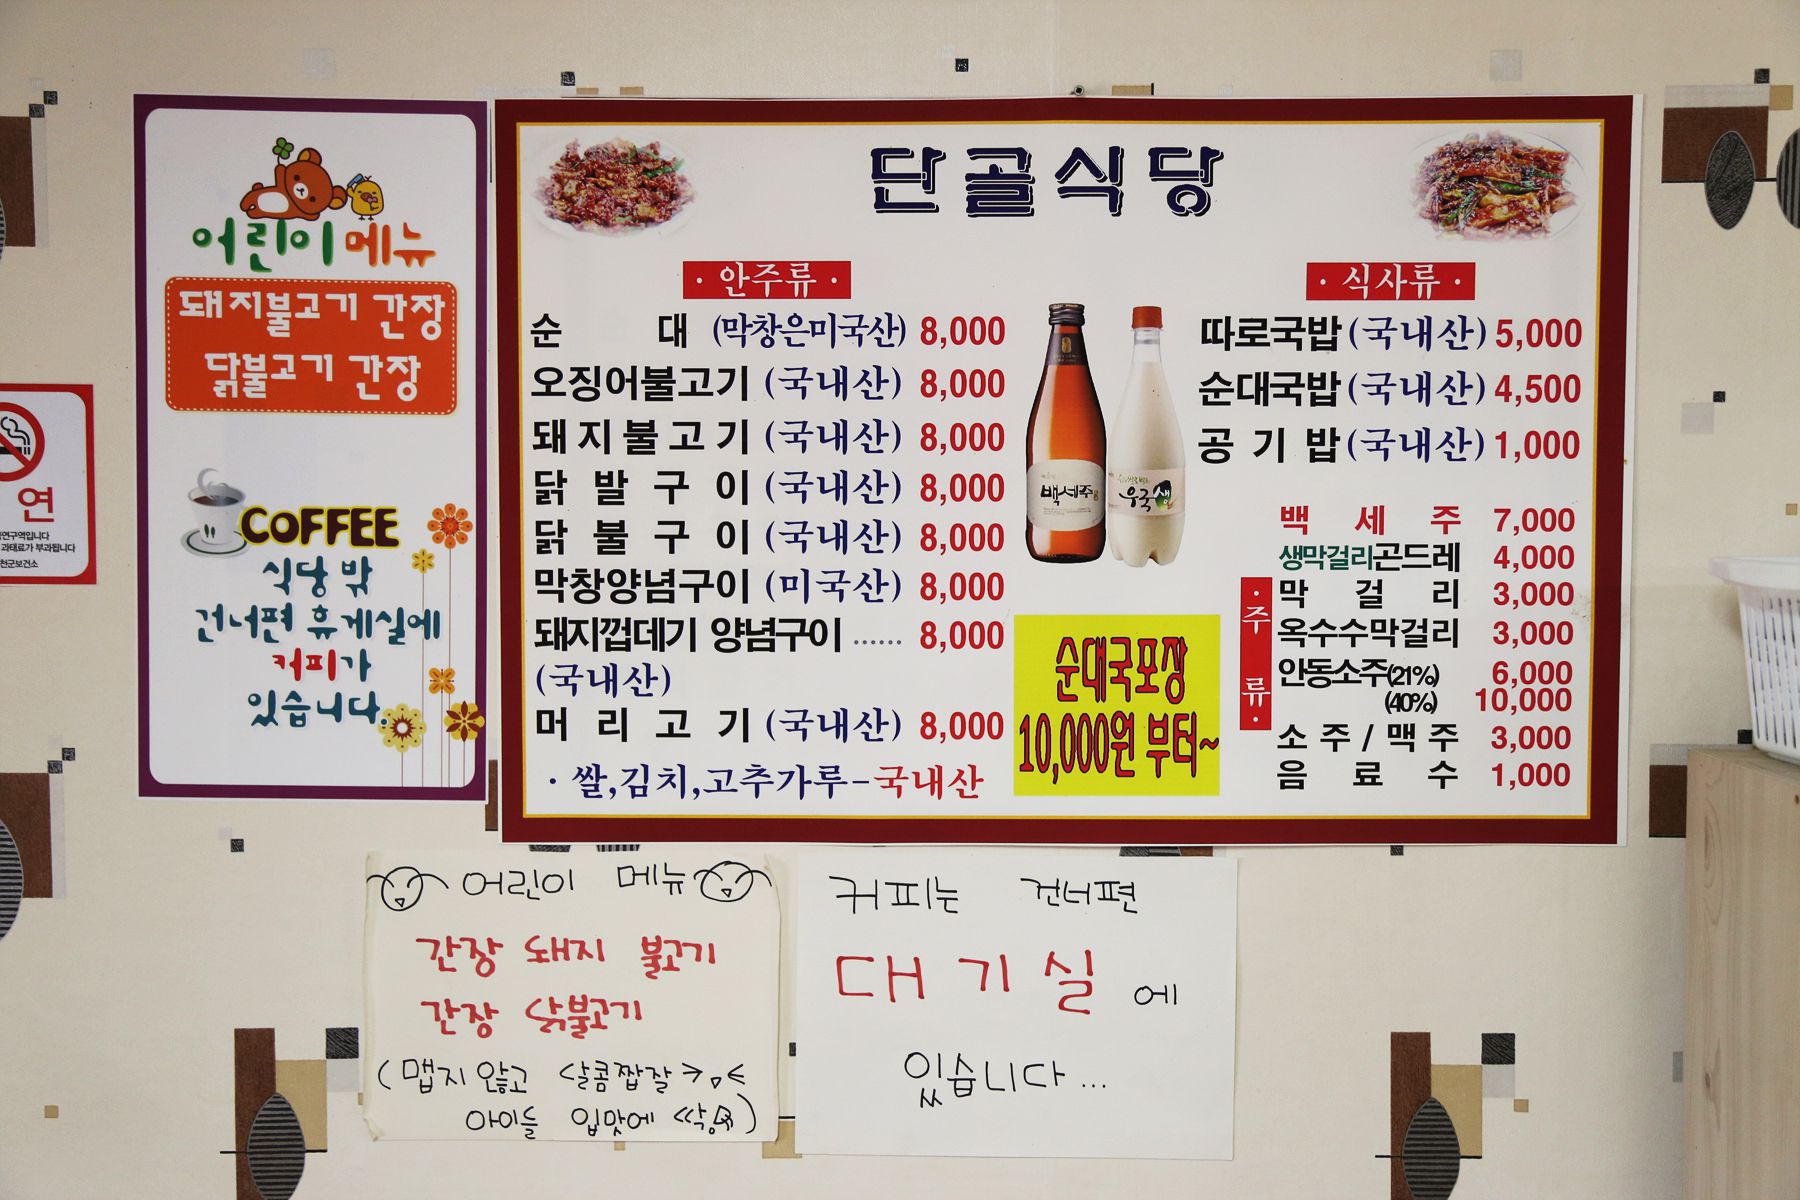 어린이 메뉴
돼지불고기 간장
닭불고기 간장
COFFEE
식당 밖
건너편 휴게실에
커피가
있습니다.
연
연구역입니다
과태료가 부과됩니다
천군보건소
단골식당
· 안주류 ·
순대 (막창은미국산) 8,000
오징어불고기 (국내산) 8,000
돼지불고기 (국내산) 8,000
닭발구이 (국내산) 8,000
닭불구이 (국내산) 8,000
막창양념구이 (미국산) 8,000
돼지껍데기 양념구이 ...... 8,000
(국내산)
머리고기 (국내산) 8,000
· 쌀,김치,고추가루-국내산
백세주
우국생
순대국포장
10,000원 부터~
· 식사류 ·
따로국밥 (국내산) 5,000
순대국밥 (국내산) 4,500
공기밥 (국내산) 1,000
· 주류 ·
백세주 7,000
생막걸리곤드레 4,000
막걸리 3,000
옥수수막걸리 3,000
안동소주(21%) 6,000
(40%) 10,000
소주/맥주 3,000
음료수 1,000
어린이 메뉴
간장 돼지 불고기
간장 닭불고기
(맵지 않고 달콤짭잘
아이들 입맛에 딱)
커피는 건너편
대기실에
있습니다...